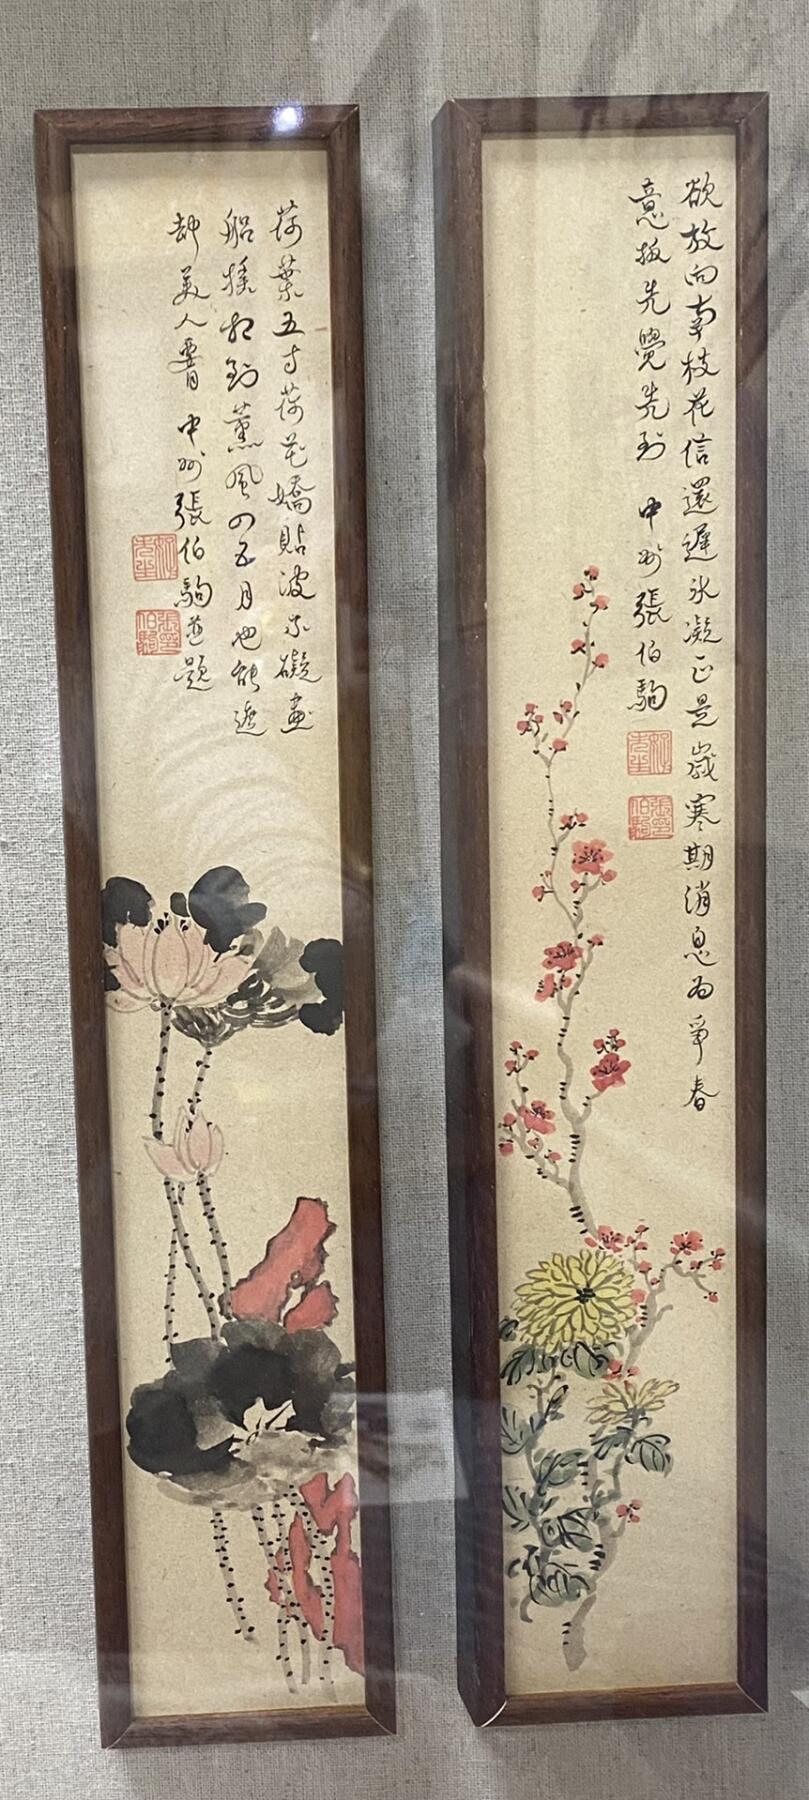 欲放向南枝花信還遲冰凝正是歲寒期消息為爭春
意報先覺先知 中州張伯駒
荷葉五寸荷花嬌貼波不礙畫
船搖相到薰風四五月也能遮
卻美人腰 中州張伯駒並題